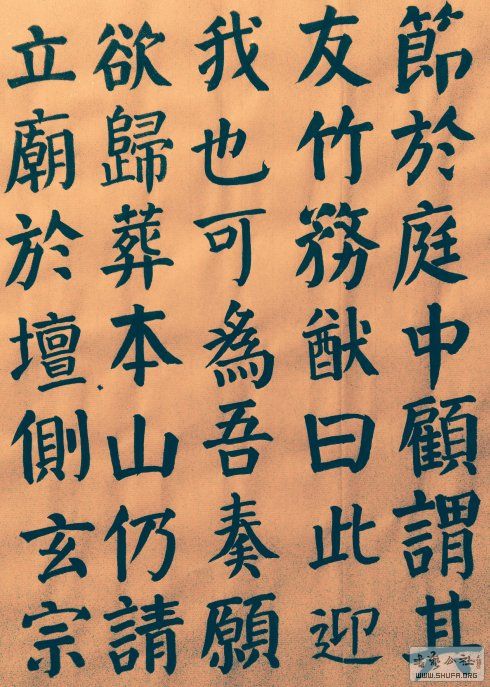 節於庭中顧謂其
友竹務猷曰此迎
我也可為吾奏願
欲歸葬本山仍請
立廟於壇側玄宗
WWW.SHUFA.ORG